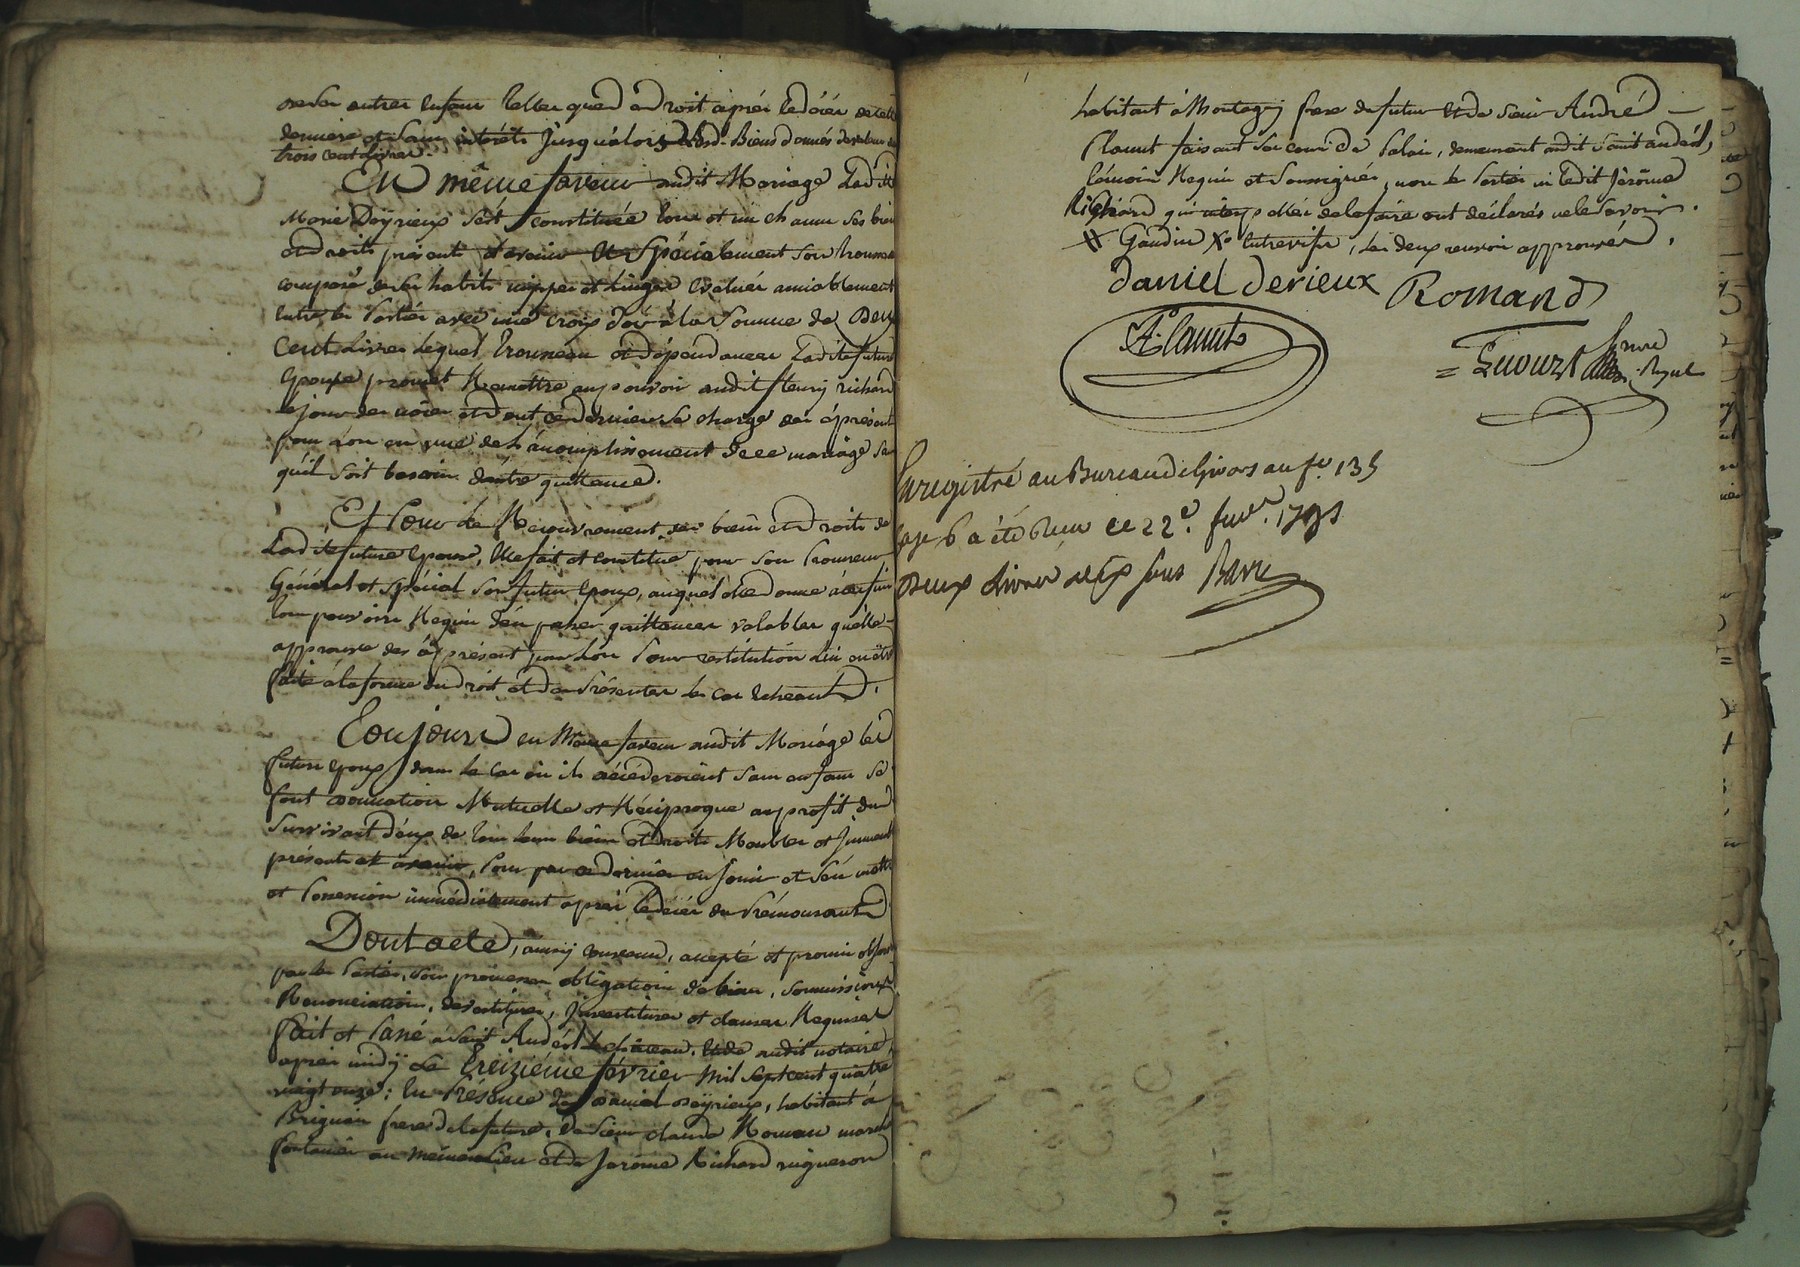 autres enfans quand au droit après le décès de
derniere et sans intérêts jusqu'alors Biens donnés de valeur de
trois cent livres.
En même faveur audit Mariage Ladite
Marie Deyrieux s'est constituée tous et un chacun ses biens
et droits présents et avenir et spécialement son trousseau
composé de ses habits nippes et linges évalués amiablement
entre les parties avec une croix d'or à la somme de Deux
cent livres lequel trousseau et dépendances Ladite future
Epouse promet Remettre au pouvoir audit fleury richard
le jour des nôces et dont ce dernier se charge dès àprésent
pour lors en vue de l'acomplissement de ce mariage sans
qu'il soit besoin d'autre quittance.
Et Pour le Recouvrement des biens et droits de
Ladite future épouse, Elle fait et constitue pour son Procureur
Général et spécial son futur époux, auquel elle donne à ces fins
tous pouvoirs Requis d'en passer quittances valables qu'elle
approuve dès àprésent pour lors Pour restitution lui en être
faite à la forme du Droit et des Présentes le cas échéant.
Toujours en même faveur audit Mariage les
futurs époux, dans le cas ou ils décéderoient sans enfans se
font donnation Mutuelle et Réciproque au profit du
survivant d'eux de tous leurs biens et droits Meubles et Immeubles
présents et avenir, Pour par ce dernier en jouir et s'en mettre
et Possession immédiatement après le décès du Prémourant
Dont acte, ainsy convenu, accepté et promis observer
par les Parties, sous promesses obligation de biens, soumissions,
Renonciation, devestitures, Investitures et clauses Requises
fait et Passé à Saint Andéol le château, Etude dudit notaire,
après midy le Treizième février Mil sept cent quatre
vingt onze; En Présence de daniel deyrieux, habitant à
Brignais frere de la future, de sieur claude Roman march
au même lieu et de Jerôme Richard vigneron
habitant à Montagny frere du futur et de sieur André
Plamet faisant son cours de Palais, demeurant audit Saint andéol,
témoins Requis et soussignés, non les Parties ni ledit Jérôme
Richard qui enquis de le faire ont déclarés ne le savoir.
# Gaudin Xo les deux renvois approuvés.
daniel derieux Romand
A. Plamet
Royal
Enregistré au Bureau de Givors au f.o 135
a été Reçu ce 22e. fevr. 1791
Deux Livres dix sous